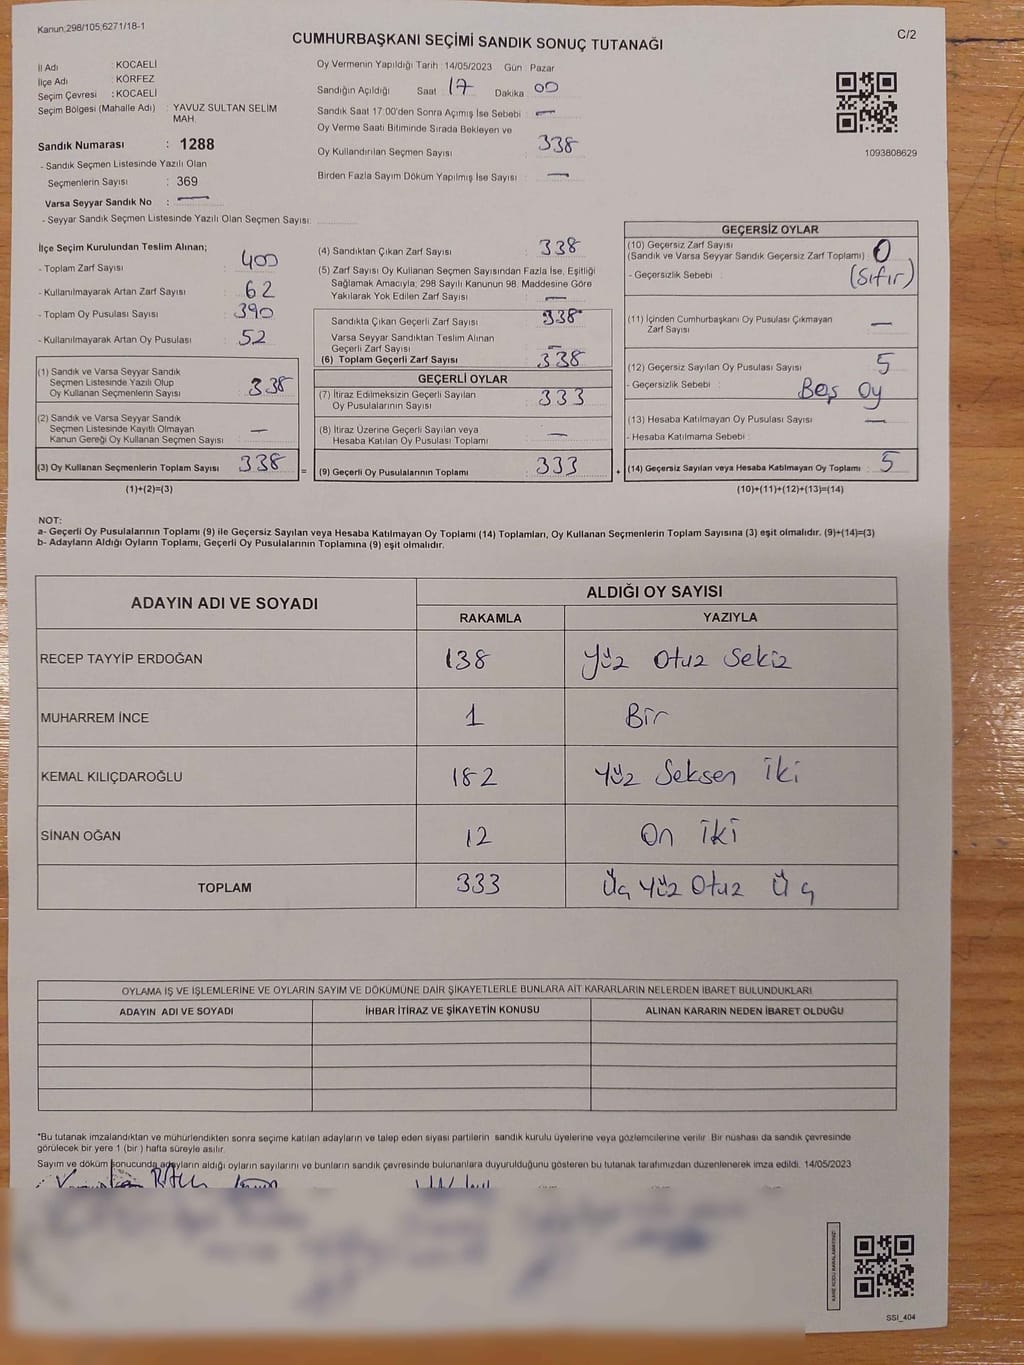 Kanun:298/105;6271/18-1
C/2
CUMHURBAŞKANI SEÇİMİ SANDIK SONUÇ TUTANAĞI
İl Adı : KOCAELİ
İlçe Adı : KÖRFEZ
Seçim Çevresi : KOCAELİ
Seçim Bölgesi (Mahalle Adı) : YAVUZ SULTAN SELIM
MAH.
Sandık Numarası : 1288
- Sandık Seçmen Listesinde Yazılı Olan
Seçmenlerin Sayısı : 369
Varsa Seyyar Sandık No : —
- Seyyar Sandık Seçmen Listesinde Yazılı Olan Seçmen Sayısı:
Oy Vermenin Yapıldığı Tarih : 14/05/2023 Gün : Pazar
Sandığın Açıldığı Saat : 17 Dakika : 00
Sandık Saat 17:00'den Sonra Açımış İse Sebebi : —
Oy Verme Saati Bitiminde Sırada Bekleyen ve
Oy Kullandırılan Seçmen Sayısı : 338
Birden Fazla Sayım Döküm Yapılmış İse Sayısı : —
1093808629
İlçe Seçim Kurulundan Teslim Alınan;
- Toplam Zarf Sayısı : 400
- Kullanılmayarak Artan Zarf Sayısı : 62
- Toplam Oy Pusulası Sayısı : 390
- Kullanılmayarak Artan Oy Pusulası : 52
(1) Sandık ve Varsa Seyyar Sandık
Seçmen Listesinde Yazılı Olup
Oy Kullanan Seçmenlerin Sayısı : 338
(2) Sandık ve Varsa Seyyar Sandık
Seçmen Listesinde Kayıtlı Olmayan
Kanun Gereği Oy Kullanan Seçmen Sayısı : —
(3) Oy Kullanan Seçmenlerin Toplam Sayısı : 338
(1)+(2)=(3)
(4) Sandıktan Çıkan Zarf Sayısı : 338
(5) Zarf Sayısı Oy Kullanan Seçmen Sayısından Fazla İse, Eşitliği
Sağlamak Amacıyla; 298 Sayılı Kanunun 98. Maddesine Göre
Yakılarak Yok Edilen Zarf Sayısı : —
Sandıkta Çıkan Geçerli Zarf Sayısı : 338
Varsa Seyyar Sandıktan Teslim Alınan
Geçerli Zarf Sayısı : —
(6) Toplam Geçerli Zarf Sayısı : 338
GEÇERLİ OYLAR
(7) İtiraz Edilmeksizin Geçerli Sayılan
Oy Pusulalarının Sayısı : 333
(8) İtiraz Üzerine Geçerli Sayılan veya
Hesaba Katılan Oy Pusulası Toplamı : —
= (9) Geçerli Oy Pusulalarının Toplamı : 333
GEÇERSİZ OYLAR
(10) Geçersiz Zarf Sayısı
(Sandık ve Varsa Seyyar Sandık Geçersiz Zarf Toplamı) : 0
- Geçersizlik Sebebi : (Sıfır)
(11) İçinden Cumhurbaşkanı Oy Pusulası Çıkmayan
Zarf Sayısı : —
(12) Geçersiz Sayılan Oy Pusulası Sayısı : 5
- Geçersizlik Sebebi : Beş Oy
(13) Hesaba Katılmayan Oy Pusulası Sayısı : —
- Hesaba Katılmama Sebebi :
+ (14) Geçersiz Sayılan veya Hesaba Katılmayan Oy Toplamı : 5
(10)+(11)+(12)+(13)=(14)
NOT:
a- Geçerli Oy Pusulalarının Toplamı (9) ile Geçersiz Sayılan veya Hesaba Katılmayan Oy Toplamı (14) Toplamları, Oy Kullanan Seçmenlerin Toplam Sayısına (3) eşit olmalıdır. (9)+(14)=(3)
b- Adayların Aldığı Oyların Toplamı, Geçerli Oy Pusulalarının Toplamına (9) eşit olmalıdır.
ADAYIN ADI VE SOYADI
ALDIĞI OY SAYISI
RAKAMLA YAZIYLA
RECEP TAYYİP ERDOĞAN 138 Yüz Otuz Sekiz
MUHARREM İNCE 1 Bir
KEMAL KILIÇDAROĞLU 182 Yüz Seksen İki
SİNAN OĞAN 12 On İki
TOPLAM 333 Üç Yüz Otuz Üç
OYLAMA İŞ VE İŞLEMLERİNE VE OYLARIN SAYIM VE DÖKÜMÜNE DAİR ŞİKAYETLERLE BUNLARA AİT KARARLARIN NELERDEN İBARET BULUNDUKLARI
ADAYIN ADI VE SOYADI İHBAR İTİRAZ VE ŞİKAYETİN KONUSU ALINAN KARARIN NEDEN İBARET OLDUĞU
*Bu tutanak imzalandıktan ve mühürlendikten sonra seçime katılan adayların ve talep eden siyasi partilerin sandık kurulu üyelerine veya gözlemcilerine verilir. Bir nüshası da sandık çevresinde
görülecek bir yere 1 (bir ) hafta süreyle asılır.
Sayım ve döküm sonucunda adayların aldığı oyların sayılarını ve bunların sandık çevresinde bulunanlara duyurulduğunu gösteren bu tutanak tarafımızdan düzenlenerek imza edildi. 14/05/2023
SSI_404